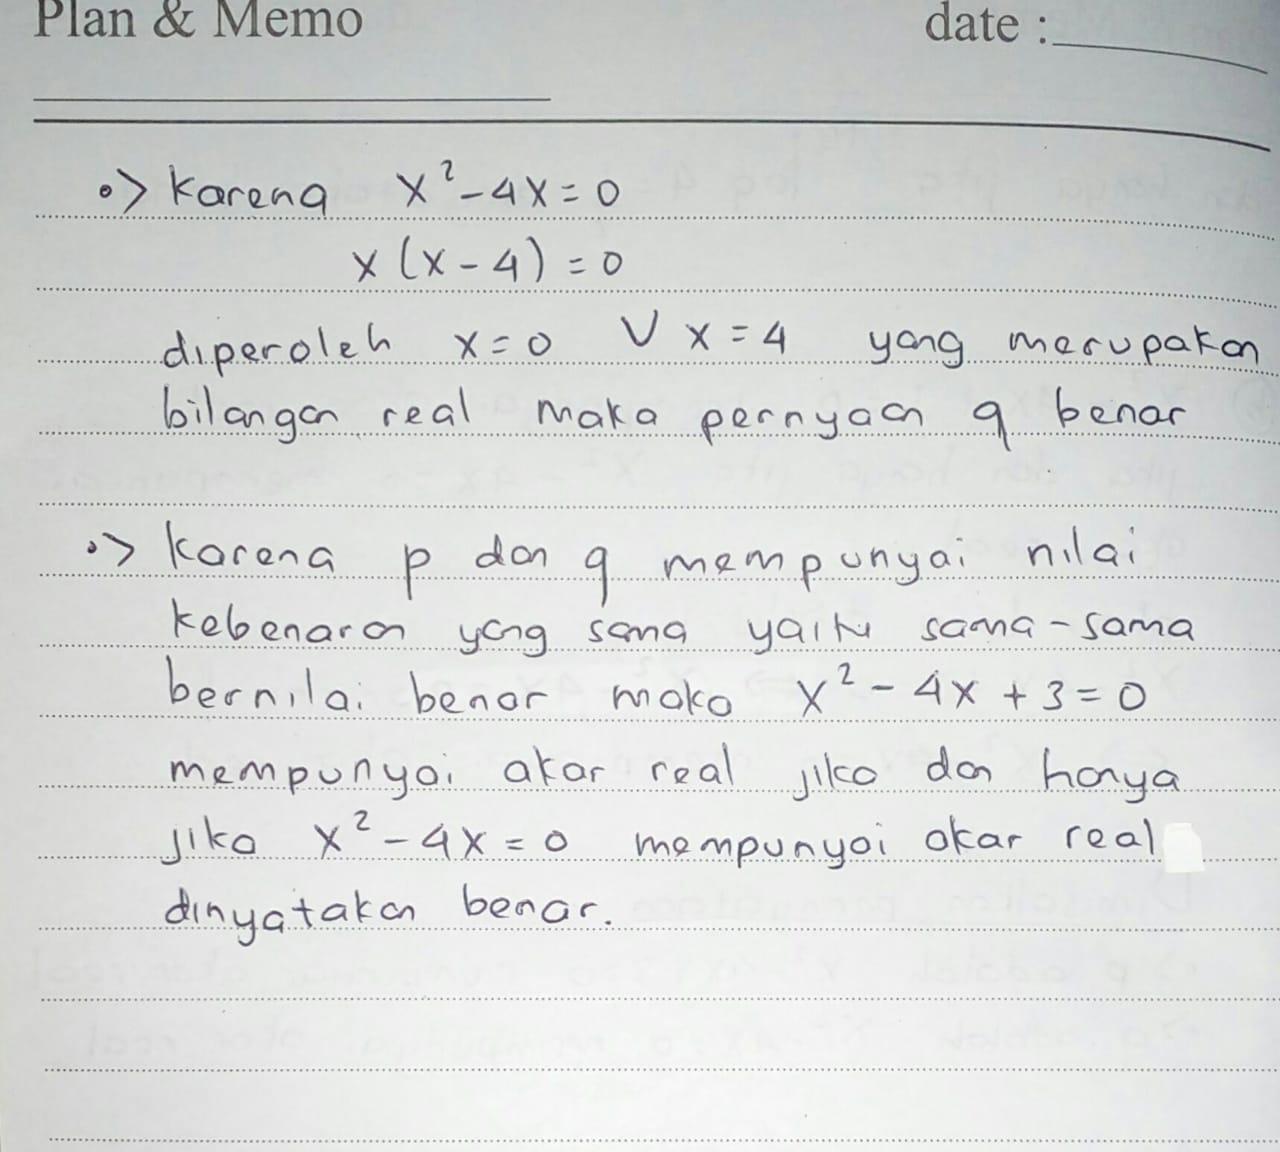 Plan & Memo
date :
•> Karena x² - 4x = 0
x (x - 4) = 0
diperoleh x = 0 V x = 4 yang merupakan
bilangan real maka pernyaan q benar
•> Karena p dan q mempunyai nilai
kebenaran yang sama yaitu sama-sama
bernilai benar maka x² - 4x + 3 = 0
mempunyai akar real jika dan hanya
jika x² - 4x = 0 mempunyai akar real
dinyatakan benar.